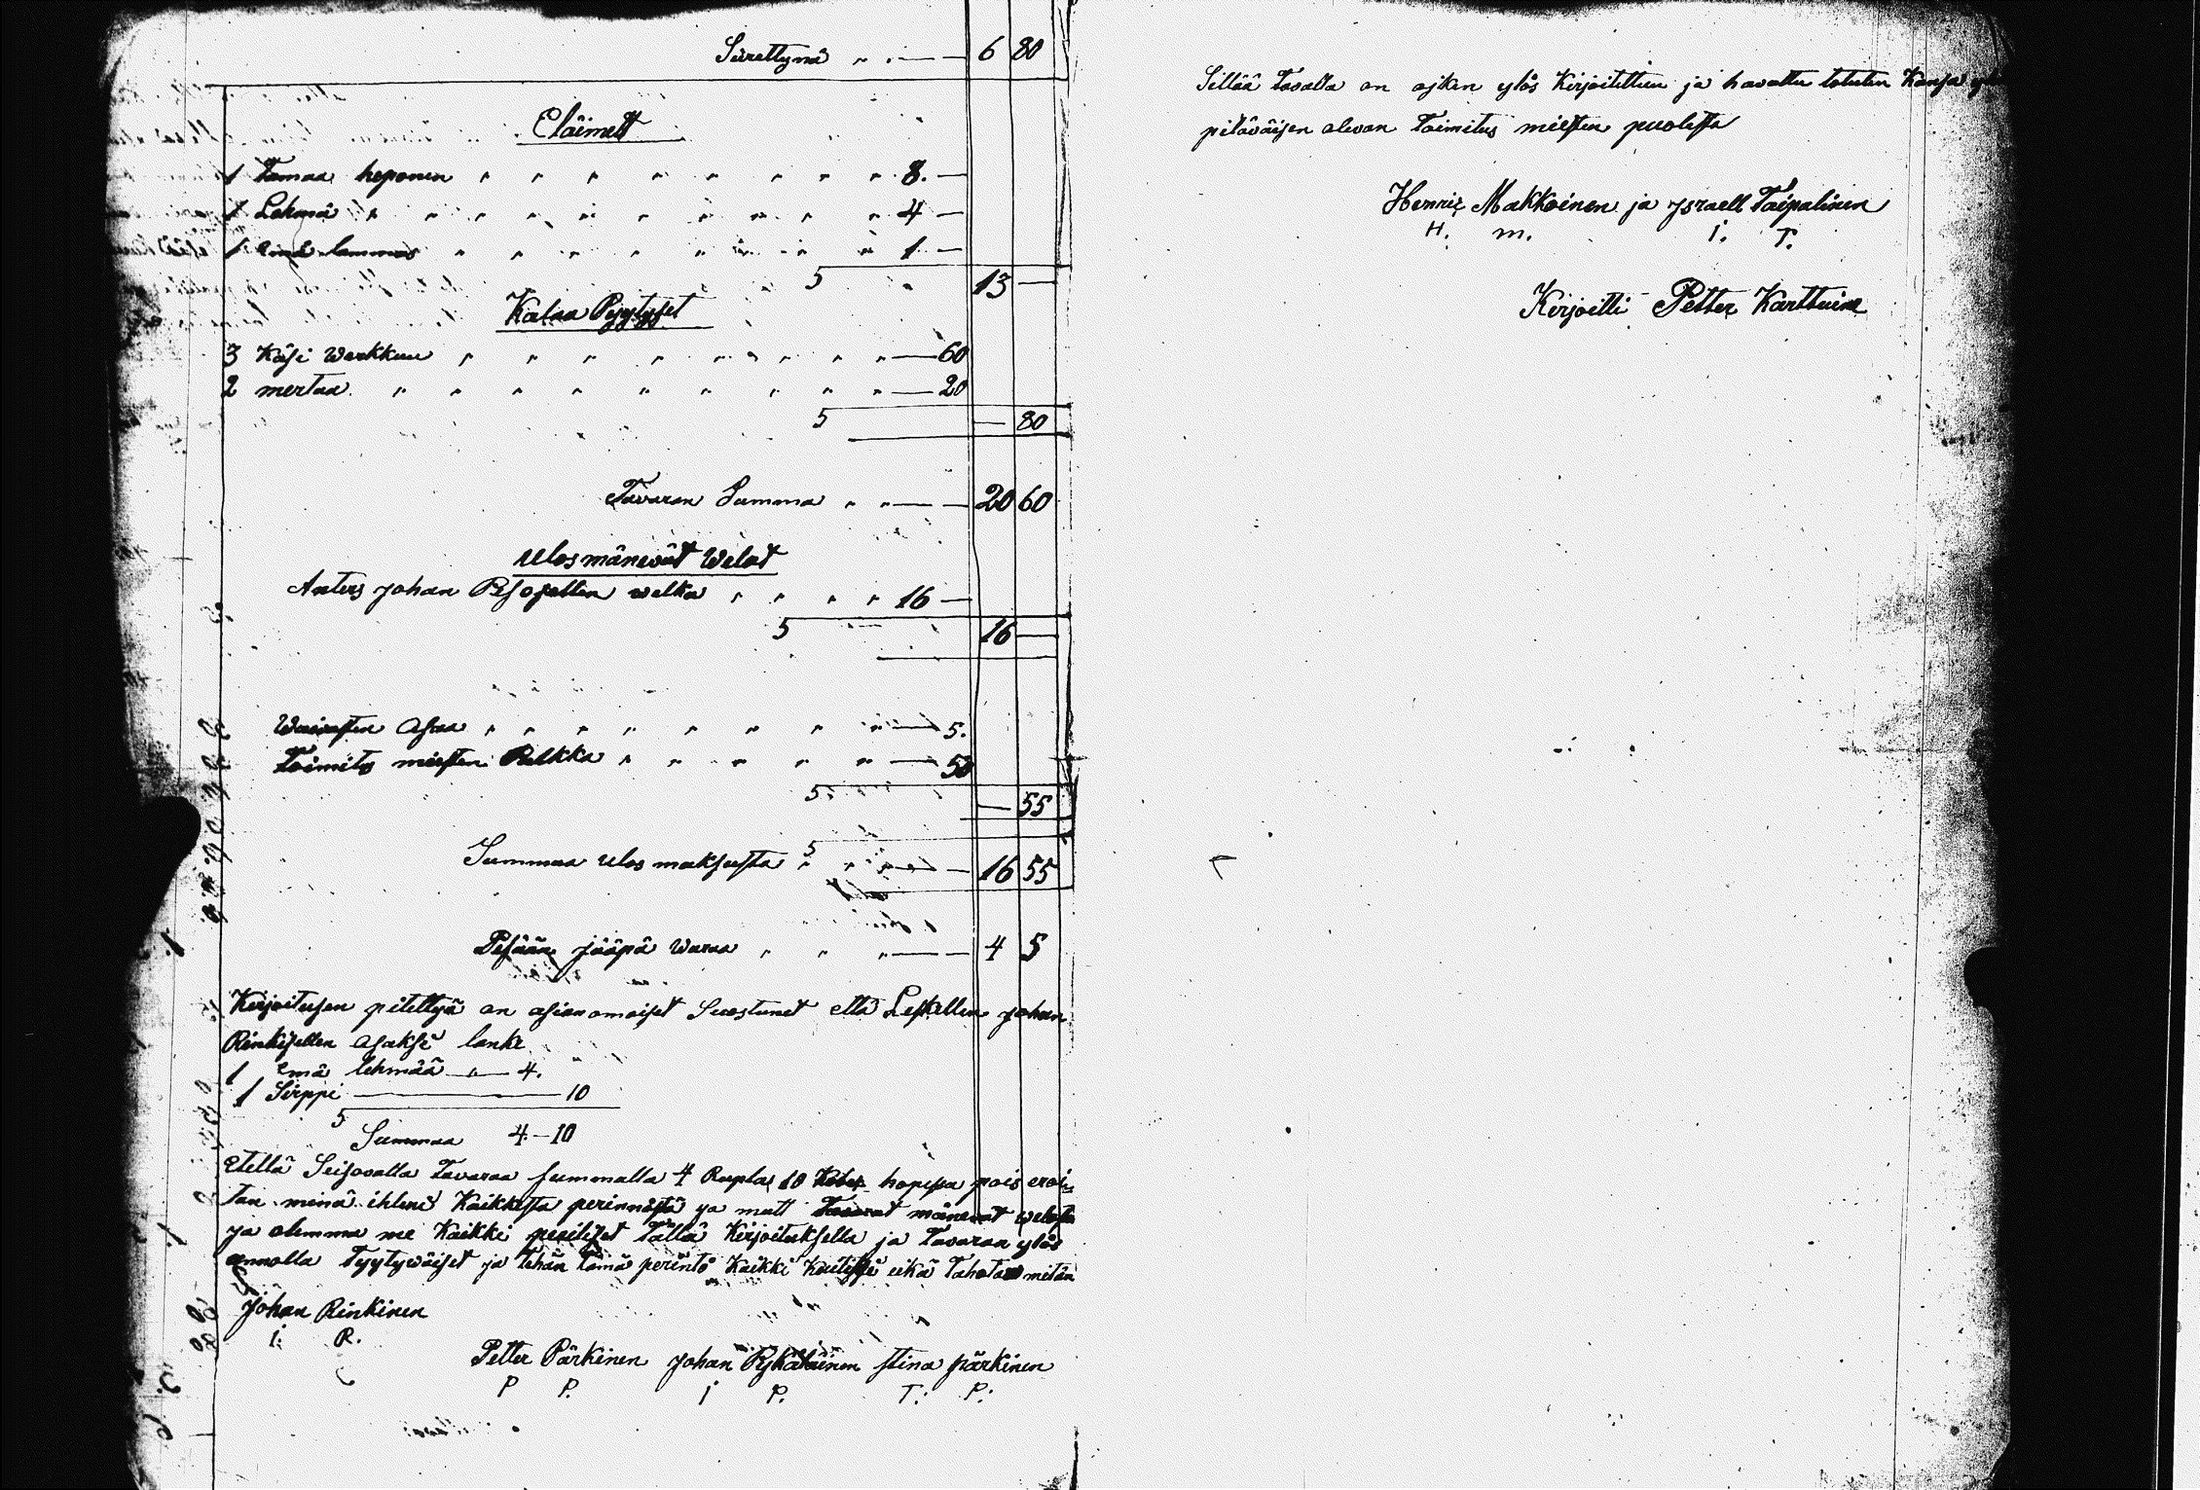 Siirettynä „ „ — — 6 80
Eläimett
1 Tamaa heponen „ „ „ „ „ „ „ „ 8. —
1 Lehmä „ „ „ „ „ „ „ „ „ 4 —
1 Emä lammas „ „ „ „ „ „ „ „ 1. —
5 13 —
Kalaa Pyytyset
3 Käsi Werkkuu „ „ „ „ „ „ „ „ — 60
2 mertaa „ „ „ „ „ „ „ „ „ — 20
5 — 80
Tavaran Summa „ „ — — 20 60
Ulosmänevät Welat
Anters Johan welka „ „ „ „ 16 —
5 16 —
Waivasten Osaa „ „ „ „ „ „ „ „ — 5.
Toimitus miesten Palkka „ „ „ „ „ — 50
5 — 55
Summaa ulos maksusta 5 „ „ „ — 16 55
Pesään jääpä waraa „ „ „ — — 4 5
Kirjoitusen pitettyä on asianomaiset Suostunet että Leskellen Johan
Rinkisellen Osaksi lanke
1 Emä lehmää „ — 4.
1 Sirppi — 10
5
Summaa 4 — 10
Etellä Seisovalla Tavaraa summalla 4 Rupla 10 Kobek hopessa pois eroi-
tan minä ihleni Kaikkesta perinnöstä ja mutt Tavarat mänevat welosta
ja olemma me Kaikki Tällä Kirjoituksella ja Tavaran ylös
annolla Tyytywäiset ja Tehän Tämä perintö Kaikki eikä Tahota mitän
Johan Rinkinen
I: R.
Petter Pärkinen Johan Pykäläinen Stina pärkinen
P P. I P. T: P:
Sillää Tavalla on ojken ylös Kirjoitettuu ja havattu totuten Kansa
pitäväisen olevan Toimitus miesten puolesta
Henric Makkoinen ja Israell Taipalinen
H. m. I. T.
Kirjoitti Petter Karttuine